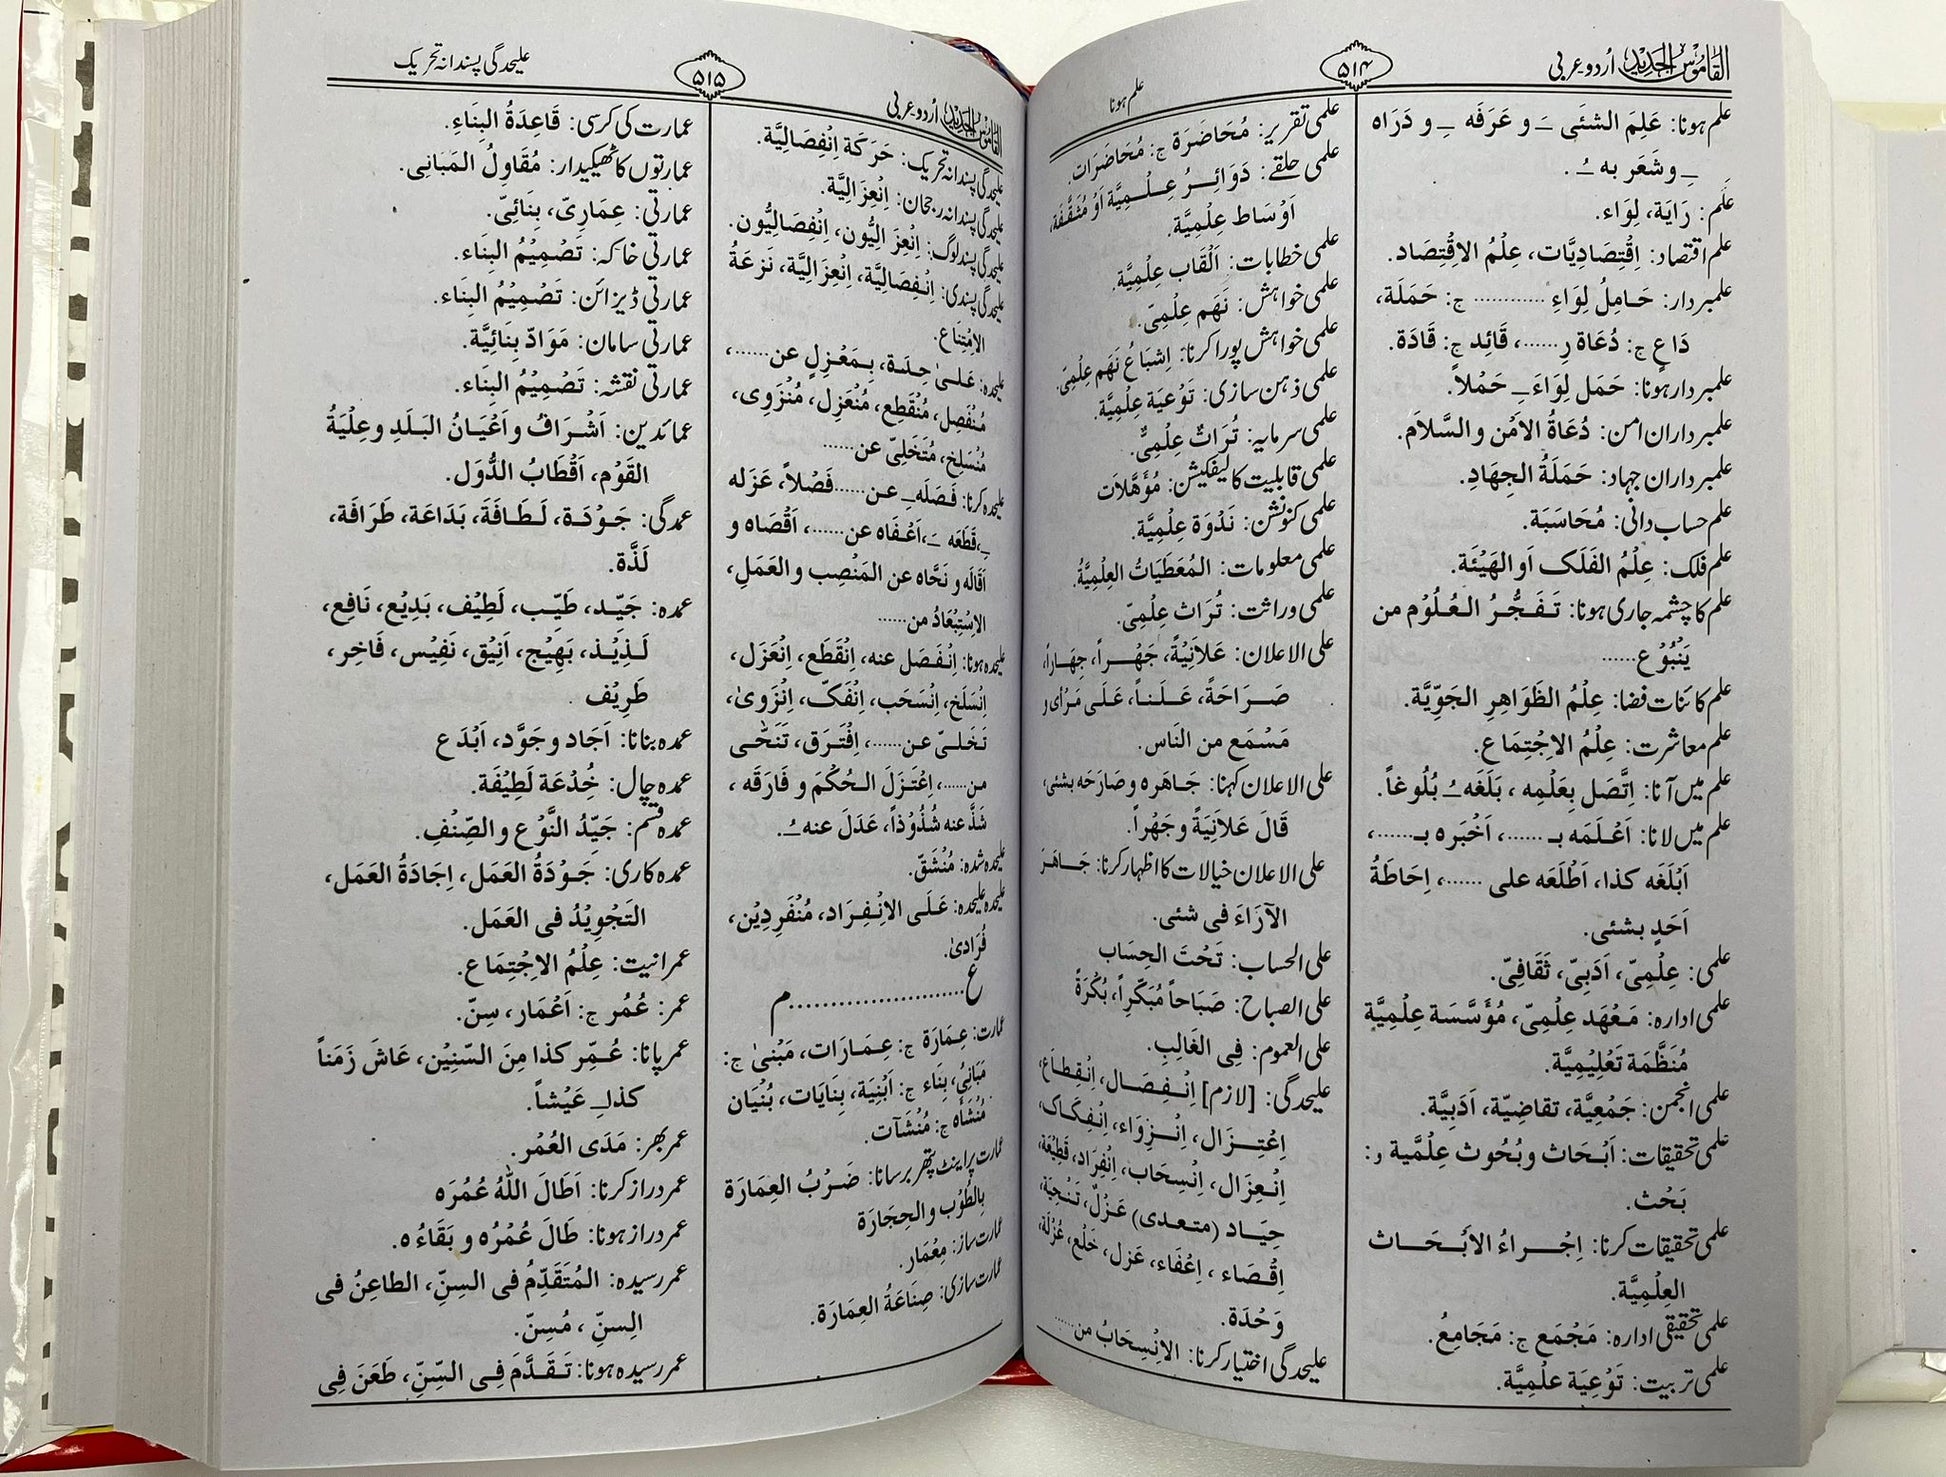 القاموس الجدید اُردو۔عربی
۵۱۴
علم ہونا
علم ہونا: عَلِمَ الشئی ـَ و عَرَفَه ـِ و دَرَاه
ـِ وشَعَر به ـُ .
عَلَم: رَایَة، لِوَاء.
علم اقتصاد: اِقْتِصَادِیَّات، عِلْمُ الاِقْتِصَاد.
علمبردار: حَامِلُ لِوَاءِ ............ ج: حَمَلَة،
دَاعٍ ج: دُعَاة رِ......، قَائِد ج: قَادَة.
علمبردار ہونا: حَمَل لِوَاءَ ـِ حَمْلاً.
علمبرداران امن: دُعَاةُ الاَمْن و السَّلاَم.
علمبرداران جہاد: حَمَلَةُ الجِهَاد.
علم حساب دانی: مُحَاسَبَة.
علم فلک: عِلْمُ الفَلَک اَو الهَیْئَة.
علم کا چشمہ جاری ہونا: تَفَجُّرُ العُلُوْم من
یَنْبُوْ ع......
علم کائنات فضا: عِلْمُ الظَوَاهِرِ الجَوِّیَّة.
علم معاشرت: عِلْمُ الاِجْتِمَاع.
علم میں آنا: اِتَّصَل بِعَلْمِه، بَلَغَه ـُ بُلُوغاً.
علم میں لانا: اَعْلَمَه بـ ......، اَخْبَرَه بـ ......،
اَبْلَغَه کذا، اَطْلَعَه علی ......، اِحَاطَةُ
اَحَدٍ بشئی.
علمی: عِلْمِیّ، اَدَبِیّ، ثَقَافِیّ.
علمی ادارہ: مَعْهَد عِلْمِیّ، مُؤَسَّسَة عِلْمِیَّة
مُنَظَّمَة تَعْلِیْمِیَّة.
علمی انجمن: جَمْعِیَّة، تقاضِیّة، اَدَبِیَّة.
علمی تحقیقات: اَبْحَاث وبُحُوث عِلْمَّیة و:
بَحْث.
علمی تحقیقات کرنا: اِجْرَاءُ الاَبْحَاث
العِلْمِیَّة.
علمی تحقیقی ادارہ: مَجْمَع ج: مَجَامِعُ.
علمی تربیت: تَوْعِیَة عِلْمِیَّة.
علمی تقریر: مُحَاضَرَة ج: مُحَاضَرَات.
علمی حلقے: دَوَائِرُ عِلْمِیَّة اَوْ مُثَقَّفَة،
اَوْسَاط عِلْمِیَّة.
علمی خطابات: اَلْقَاب عِلْمِیَّة.
علمی خواہش: نَهَم عِلْمِیّ.
علمی خواہش پورا کرنا: اِشْبَاعُ نَهَم عِلْمِیّ.
علمی ذہن سازی: تَوْعِیَة عِلْمِیَّة.
علمی سرمایہ: تُرَاثٌ عِلْمِیٌّ.
علمی قابلیت کالیفکیشن: مُؤَهَّلاَت
علمی کنونشن: نَدْوَة عِلْمِیَّة.
علمی معلومات: المُعَطَیَاتُ العِلْمِیَّةُ.
علمی وراثت: تُرَاث عِلْمِیّ.
علی الاعلان: عَلاَنِیَةً، جَهْراً، جِهَاراً،
صَرَاحَةً، عَلَناً، عَلَی مَرْأی و
مَسْمَع من النَاس.
علی الاعلان کہنا: جَاهَره و صَارَحَه بشئی،
قَالَ عَلاَنِیَةً و جَهْراً.
علی الاعلان خیالات کا اظہار کرنا: جَاهَرَ
الآرَاءَ فی شئی.
علی الحساب: تَحْتَ الحِسَاب
علی الصباح: صَبَاحاً مُبَکِّراً، بُکْرَةً
علی العموم: فِی الغَالِبِ.
علیحدگی: [لازم] اِنْفِصَال، اِنْقِطَاع،
اِعْتِزَال، اِنْزِوَاء، اِنْفِکَاک،
اِنْعِزَال، اِنْسِحَاب، اِنْفِرَاد، قَطِیْعَة،
حِیَاد (متعدی) عَزْلٌ، تَنْحِیَة،
اِقْصَاء، اِعْفَاء، عَزل، خَلْع، عُزْلَة،
وَحْدَة.
علیحدگی اختیار کرنا: الاِنْسِحَابُ من......
القاموس الجدید اُردو۔عربی
۵۱۵
علیحدگی پسندانہ تحریک
علیحدگی پسندانہ تحریک: حَرَکَة اِنْفِصَالِیَّة.
علیحدگی پسندانہ رجحان: اِنْعِزَالِیَّة.
علیحدگی پسند لوگ: اِنْعِزَالِیُّون، اِنْفِصَالِیُّون.
علیحدگی پسندی: اِنْفِصَالِیَّة، اِنْعِزَالِیَّة، نَزعَةُ
الاِمْتِنَاع.
علیحدہ: عَلیٰ حِدَة، بِمَعْزِلٍ عن......،
مُنْفَصِل، مُنْقَطِع، مُنْعَزِل، مُنْزَوِی،
مُنْسَلِخ، مُتَخَلِیّ عن......
علیحدہ کرنا: فَصَلَه ـِ عن......فَصْلاً، عَزَله
ـِ، قَطَعَه ـَ، اَعْفَاه عن......، اَقْصَاه و
اَقَالَه و نَحَّاه عن المَنْصِب و العَمَل،
الاِسْتِبْعَادُ من......
علیحدہ ہونا: اِنْفَصَل عنه، اِنْقَطَع، اِنْعَزَل،
اِنْسَلَخ، اِنْسَحَب، اِنْفَکّ، اِنْزَویٰ،
تَخَلیّ عن......، اِفْتَرَق، تَنَحّٰی
من......، اِعْتَزَلَ الحُکْمَ و فَارَقَه،
شَذَّ عنه شُذُوْذاً، عَدَلَ عنه ـُ.
علیحدہ شدہ: مُنْشَقّ.
علیحدہ علیحدہ: عَلَی الاِنْفِرَاد، مُنْفَرِدِیْن،
فُرَادیٰ.
ع......................م
عمارت: عِمَارَة ج: عِمَارَات، مَبْنیٰ ج:
مَبَانِیُ، بِنَاء ج: اَبْنِیَة، بِنَایَات، بُنْیَان
مُنْشَأه ج: مُنْشَآت.
عمارت پر اینٹ پتھر برسانا: ضَرْبُ العِمَارَة
بِالطُوْب و الحِجَارَة
عمارت ساز: مِعْمَار.
عمارت سازی: صِنَاعَةُ العِمَارَة.
عمارت کی کرسی: قَاعِدَةُ البِنَاءِ.
عمارتوں کا ٹھیکیدار: مُقَاوِلُ المَبَانِی.
عمارتی: عِمَارِیّ، بِنَائِیّ.
عمارتی خاکہ: تَصْمِیْمُ البِنَاء.
عمارتی ڈیزائن: تَصْمِیْمُ البِنَاء.
عمارتی سامان: مَوَادّ بِنَائِیَّة.
عمارتی نقشہ: تَصْمِیْمُ البِنَاء.
عمائدین: اَشْرَافُ و اَعْیَانُ البَلَدِ و عِلْیَةُ
القَوْم، اَقْطَابُ الدُّوَل.
عمدگی: جَوْدَة، لَطَافَة، بَدَاعَة، طَرَافَة،
لَذَّة.
عمدہ: جَیِّد، طَیِّب، لَطِیْف، بَدِیْع، نَافِع،
لَذِیْذ، بَهِیْج، اَنِیْق، نَفِیْس، فَاخِر،
طَرِیْف
عمدہ بنانا: اَجَاد و جَوَّد، اَبْدَع
عمدہ چال: خُدْعَة لَطِیْفَة.
عمدہ قسم: جَیِّدُ النَّوْع و الصِّنْف.
عمدہ کاری: جَوْدَةُ العَمَل، اِجَادَةُ العَمَل،
التَجْوِیْدُ فی العَمَل.
عمرانیت: عِلْمُ الاِجْتِمَاع.
عمر: عُمُر ج: اَعْمَار، سِنّ.
عمر پانا: عُمِّر کذا مِنَ السِّنِیْن، عَاشَ زَمَناً
کذا ـِ عَیْشاً.
عمر بھر: مَدَی العُمْر.
عمر دراز کرنا: اَطَالَ اللّٰهُ عُمُرَه
عمر دراز ہونا: طَالَ عُمْرُه و بَقَاءُه.
عمر رسیدہ: المُتَقَدِّمُ فی السِنِّ، الطاعِنُ فی
السِنِّ، مُسِنّ.
عمر رسیدہ ہونا: تَقَدَّمَ فِی السِّنِّ، طَعَنَ فِی